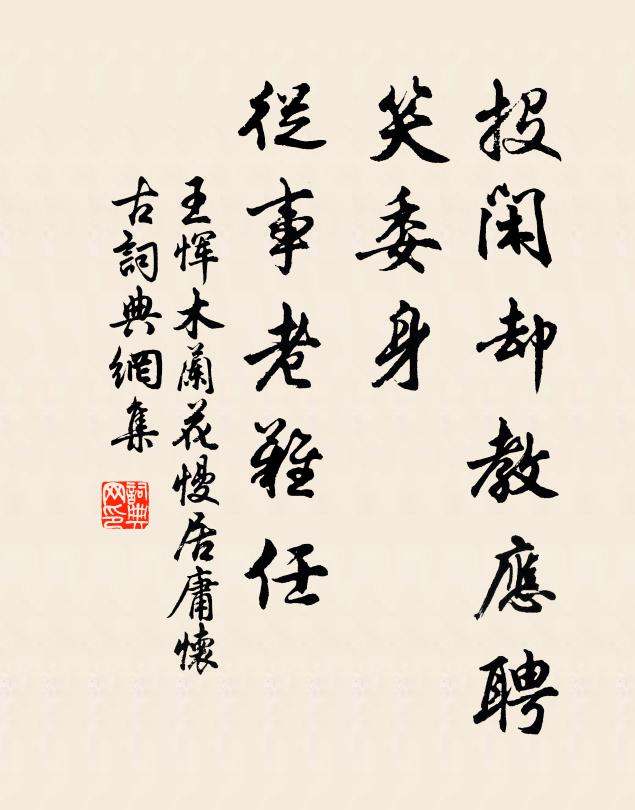 投閑却教應聘
笑委身
從事老難任
王惲木蘭花慢居庸懷
古詞典網集
詞典网印